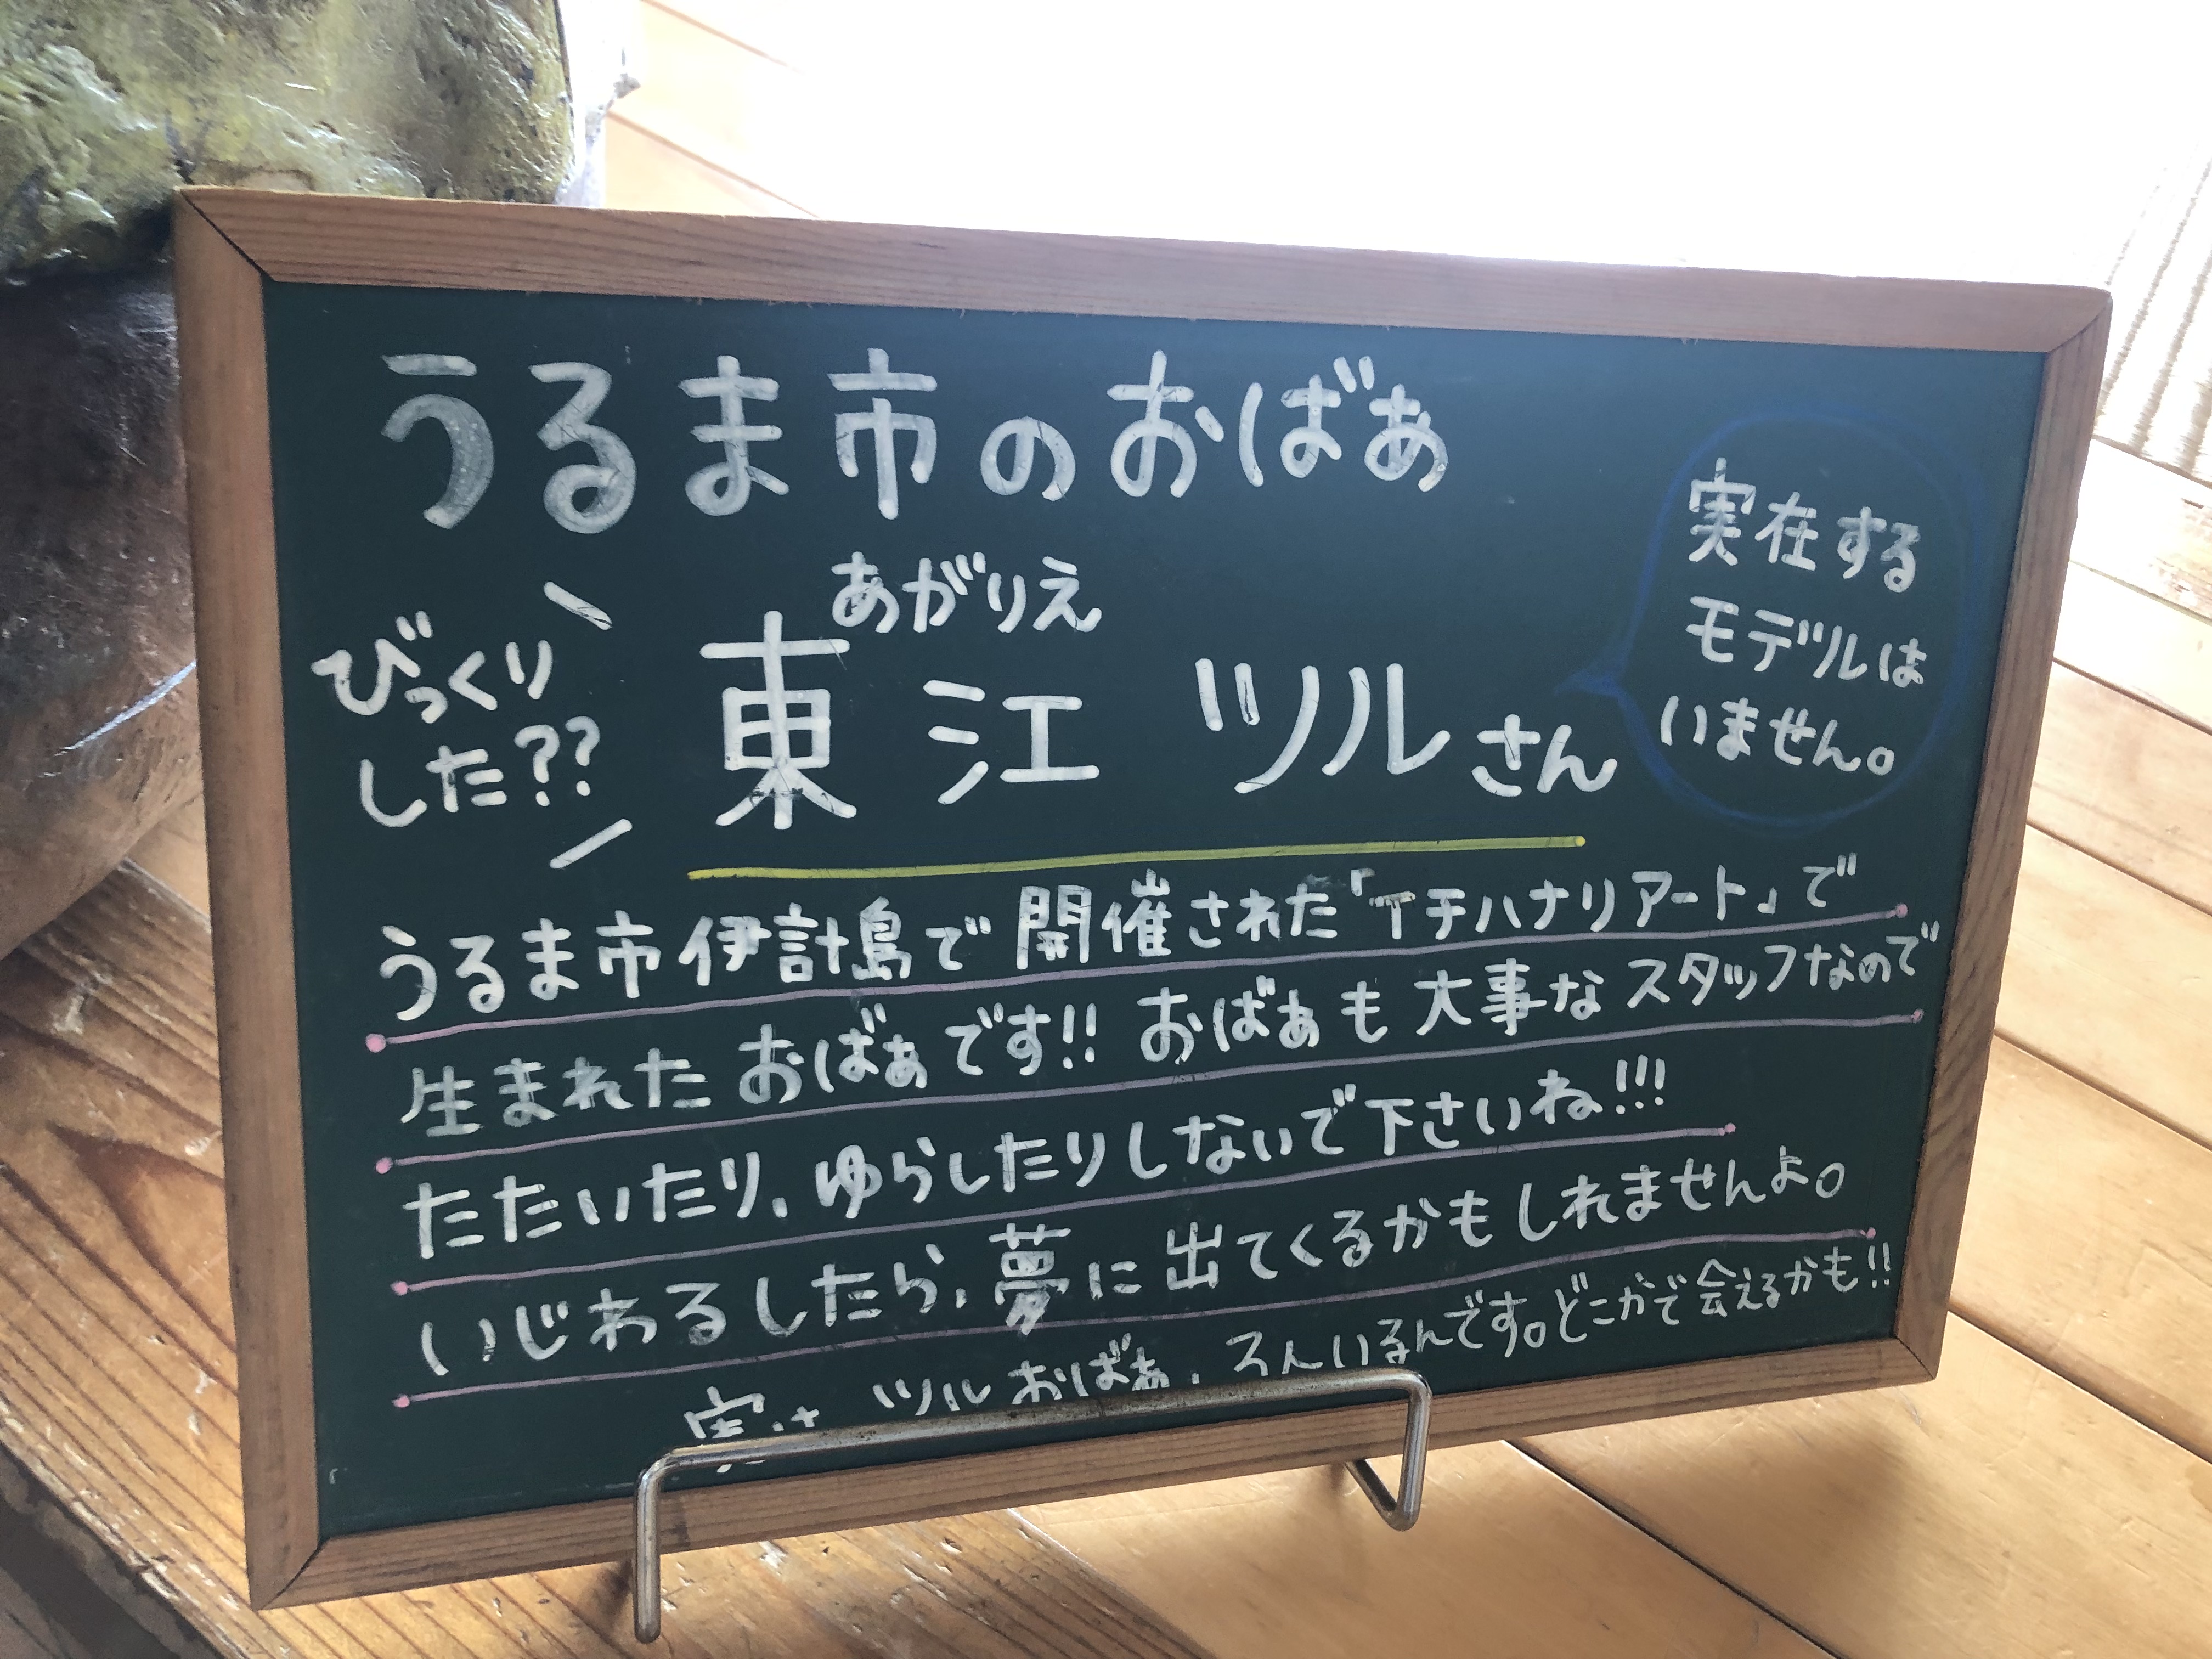 うるま市のおばぁ
実在する
モデルは
いません。
びっくり
した??
あがりえ
東江 ツルさん
うるま市伊計島で開催された「イチハナリアート」で
生まれたおばぁです!! おばぁも大事なスタッフなので
たたいたり、ゆらしたりしないで下さいね!!!
いじわるしたら、夢に出てくるかもしれませんよ。
実は ツルおばぁ、 いるんです。どこかで会えるかも!!